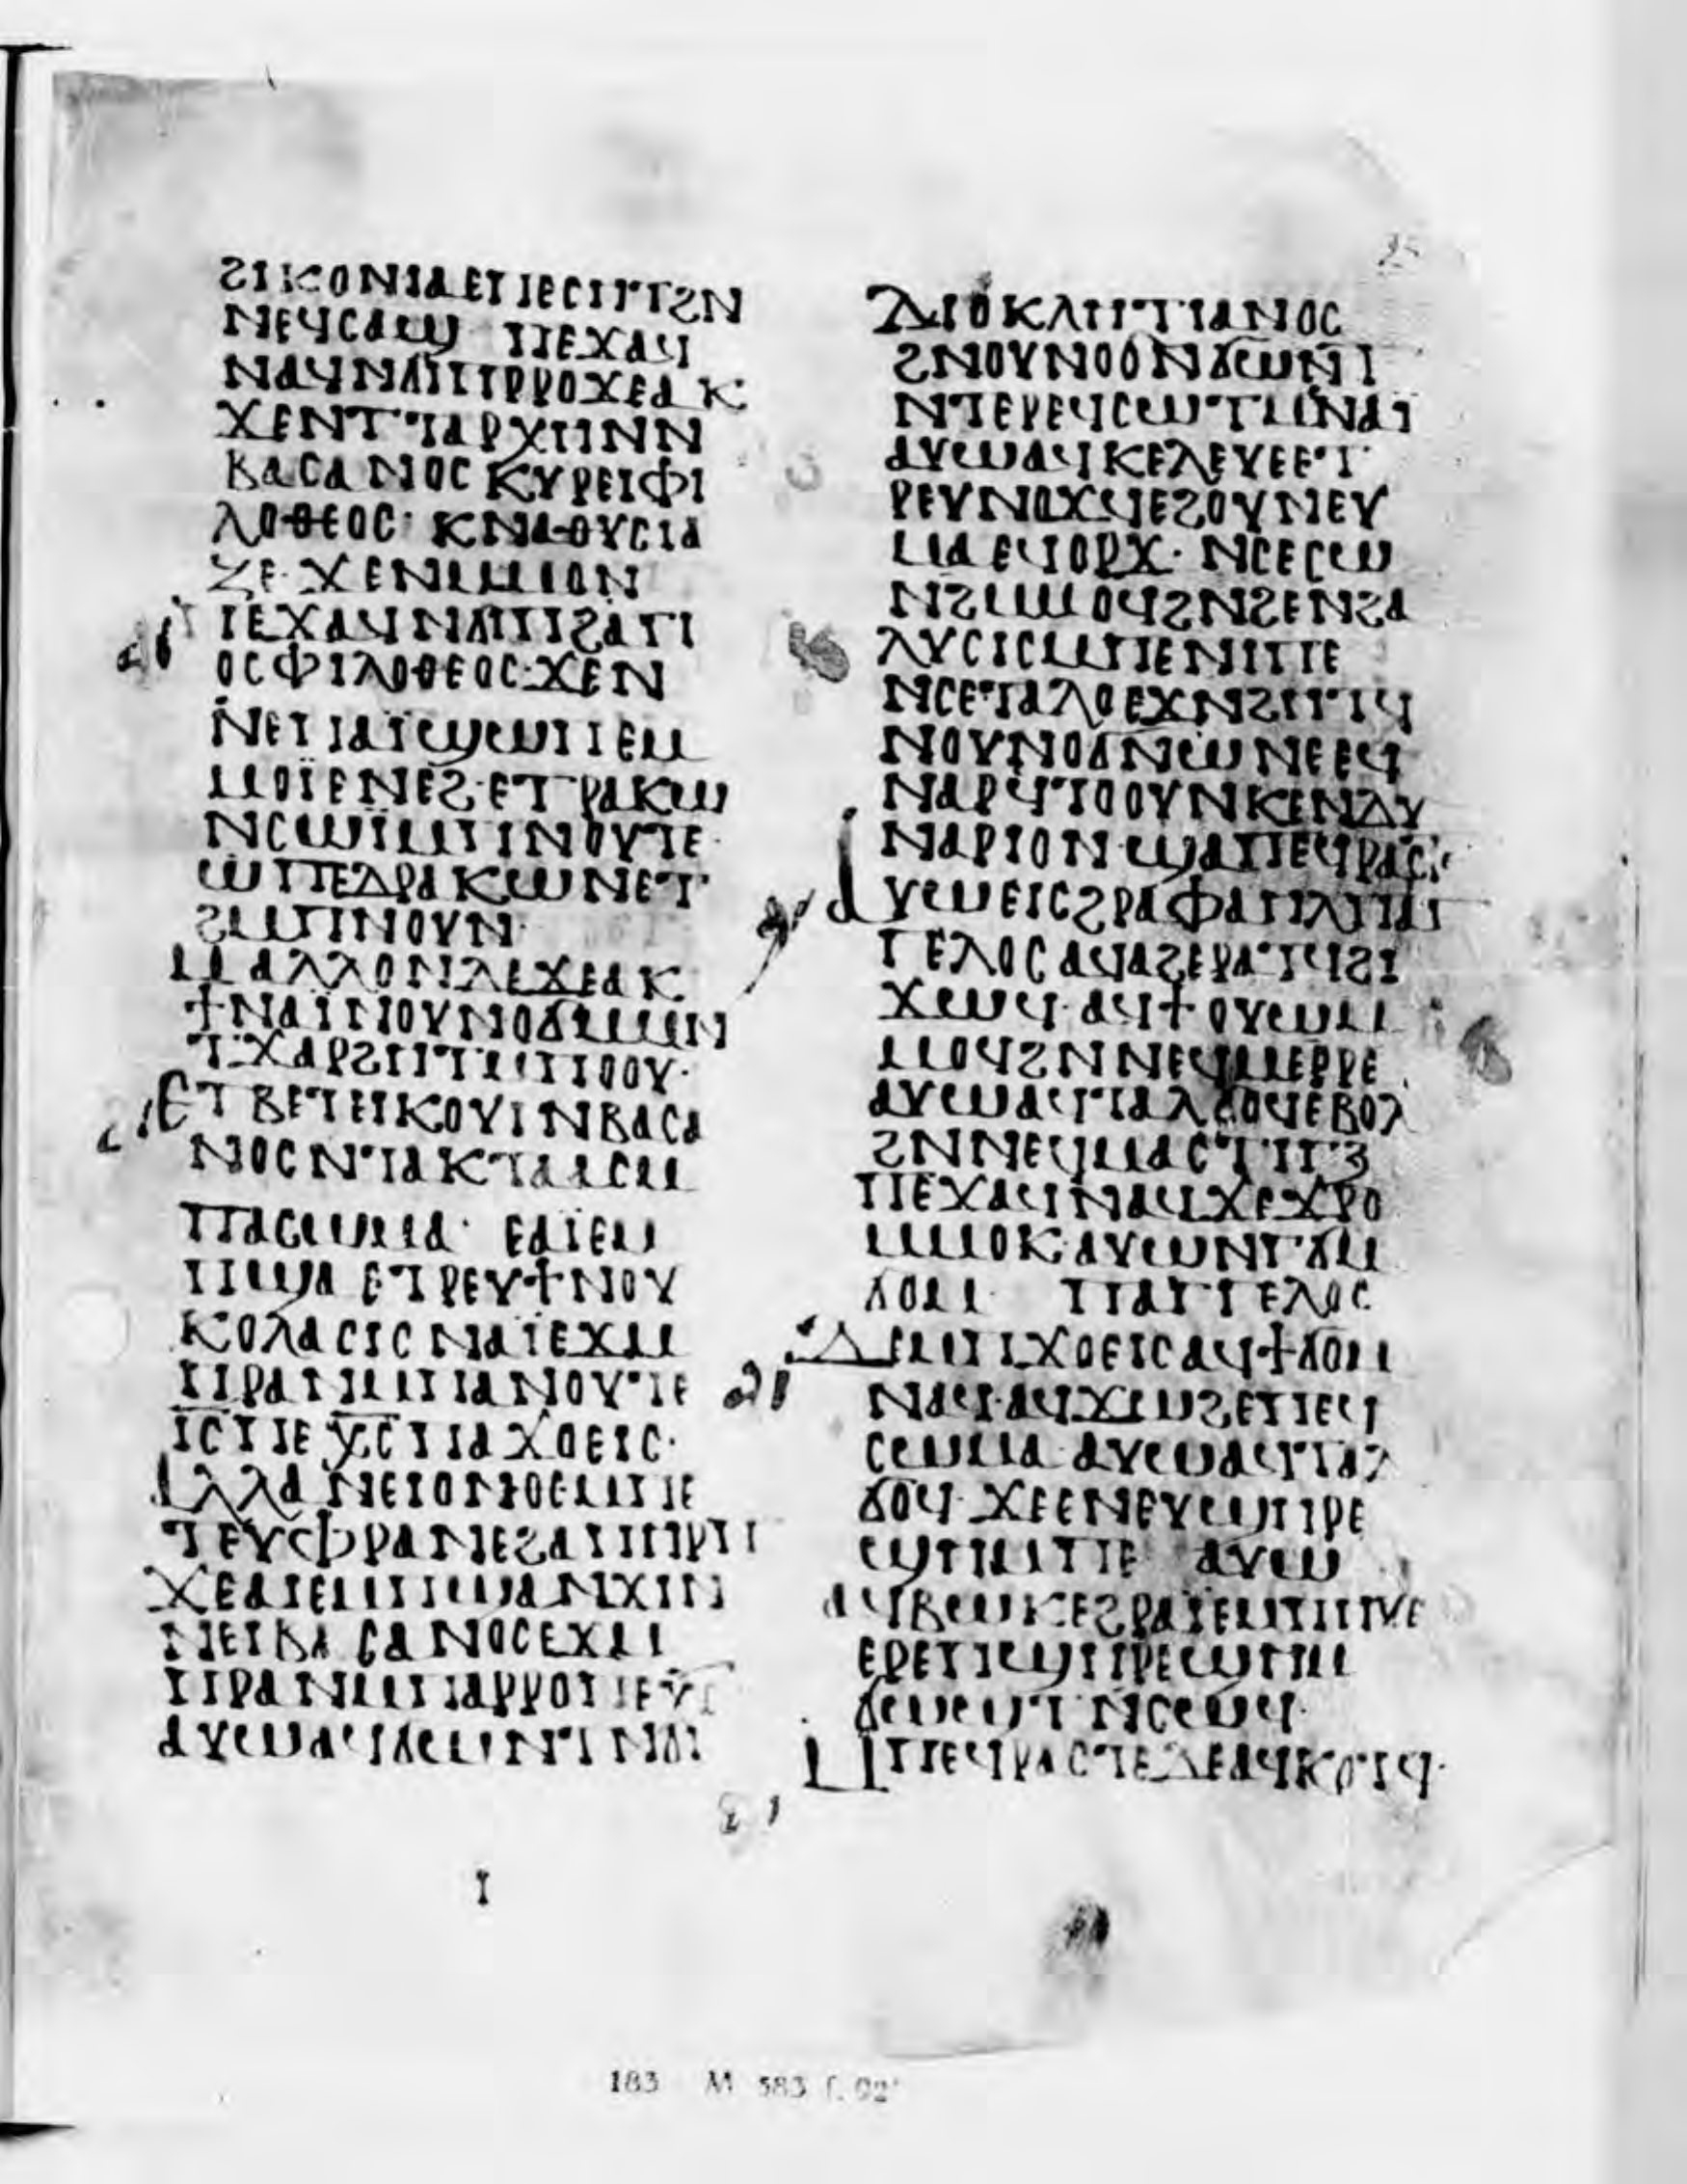 ϩⲓⲕⲟⲛⲓⲁⲉⲡⲉⲥⲏⲧϩⲛ
ⲛⲉϥⲥⲁϣ ⲡⲉϫⲁϥ
ⲛⲁϥⲛϭⲓⲡⲣⲣⲟϫⲉⲁⲕ
ϫⲉⲛⲧⲁⲣⲭⲏⲛⲛ
ⲃⲁⲥⲁⲛⲟⲥⲕⲩⲣⲉⲓⲫⲓ
ⲗⲟⲑⲉⲟⲥ· ⲕⲛⲁⲑⲩⲥⲓⲁ
ⲍⲉ· ϫⲉⲛⲙⲙⲟⲛ
ⲡⲉϫⲁϥⲛϭⲓⲡϩⲁⲅⲓ
ⲟⲥⲫⲓⲗⲟⲑⲉⲟⲥ·ϫⲉⲛ
ⲛⲉⲡⲁⲓϣⲱⲡⲉⲙ
ⲙⲟⲓⲉⲛⲉϩ·ⲉⲧⲣⲁⲕⲱ
ⲛⲥⲱⲓⲙⲡⲛⲟⲩⲧⲉ·
ⲱⲡⲉⲇⲣⲁⲕⲱⲛⲉⲧ
ϩⲙⲡⲛⲟⲩⲛ·
ⲙⲁⲗⲗⲟⲛⲗⲉϫⲉⲁⲕ
ϯⲛⲁⲓⲛⲟⲩⲛⲟϭⲙⲙⲛ
ⲧϫⲁⲣϩⲏⲧⲙⲡⲟⲟⲩ·
ⲉⲧⲃⲉⲧⲉⲓⲕⲟⲩⲓⲛⲃⲁⲥⲁ
ⲛⲟⲥⲛⲧⲁⲕⲧⲁⲁⲥⲙ
ⲡⲁⲥⲱⲙⲁ· ⲉⲁⲓⲉⲙ
ⲡϣⲁ ⲉⲧⲣⲉⲩϯⲛⲟⲩ
ⲕⲟⲗⲁⲥⲓⲥⲛⲁⲓⲉϫⲙ
ⲡⲣⲁⲛⲙⲡⲁⲛⲟⲩⲧⲉ
ⲓⲥⲡⲉⲭⲥⲡⲁϫⲟⲉⲓⲥ·
ⲁⲗⲗⲁⲛⲉⲓⲟⲛⲑⲟⲉⲙⲡⲉ
ⲧⲉⲩⲫⲣⲁⲛⲉϩⲁⲡⲏⲣⲡ
ϫⲉⲁⲓⲉⲙⲡϣⲁⲛϫⲓⲛ
ⲛⲉⲓⲃⲁⲥⲁⲛⲟⲥⲉϫⲙ
ⲡⲣⲁⲛⲙⲡⲁⲣⲣⲟⲡⲉⲭⲥ
ⲁⲩⲱⲁϥϭⲱⲛⲧⲛϭⲓ
ⲇⲓⲟⲕⲗⲏⲧⲓⲁⲛⲟⲥ
ϩⲛⲟⲩⲛⲟϭⲛϭⲱⲛⲧ
ⲛⲧⲉⲣⲉϥⲥⲱⲧⲙⲛⲁⲓ
ⲁⲩⲱⲁϥⲕⲉⲗⲉⲩⲉⲉⲧ
ⲣⲉⲩⲛⲟϫϥⲉϩⲟⲩⲛⲉⲩ
ⲙⲁ ⲉϥⲟⲣϫ· ⲛⲥⲉⲥⲱ
ⲛϩⲙⲙⲟϥϩⲛϩⲉⲛϩⲁ
ⲗⲩⲥⲓⲥⲙⲡⲉⲛⲓⲡⲉ
ⲛⲥⲉⲧⲁⲗⲟⲉϫⲛϩⲏⲧϥ
ⲛⲟⲩⲛⲟϭⲛⲱⲛⲉⲉϥ
ⲛⲁⲣϥⲧⲟⲟⲩⲛⲕⲉⲛⲇⲩ
ⲛⲁⲣⲓⲟⲛ·ϣⲁⲡⲉϥⲣⲁⲥⲧⲉ
ⲁⲩⲱⲉⲓⲥϩⲣⲁⲫⲁⲏⲗⲡⲁⲅ
ⲅⲉⲗⲟⲥⲁϥⲁϩⲉⲣⲁⲧϥϩⲓ
ϫⲱϥ· ⲁϥϯⲟⲩⲱⲙ
ⲙⲟϥϩⲛⲛⲉϥⲙⲉⲣⲣⲉ
ⲁⲩⲱⲁϥⲧⲁⲗϭⲟϥⲉⲃⲟⲗ
ϩⲛⲛⲉϥⲙⲁⲥⲧⲓⲅⲝ
ⲡⲉϫⲁϥⲛⲁϥϫⲉϫⲣⲟ
ⲙⲙⲟⲕ·ⲁⲩⲱⲛⲅϭⲙ
ϭⲟⲙ ⲡⲁⲅⲅⲉⲗⲟⲥ
ⲇⲉⲙⲡϫⲟⲉⲓⲥⲁϥϯϭⲟⲙ
ⲛⲁϥ·ⲁϥϫⲱϩⲉⲡⲉϥ
ⲥⲱⲙⲁ·ⲁⲩⲱⲁϥⲧⲁⲗ
ϭⲟϥ· ϫⲉⲉⲛⲉⲩϣⲡⲣⲉ
ϣⲏⲙⲡⲉ ⲁⲩⲱ
ⲁϥⲃⲱⲕⲉϩⲣⲁⲓⲉⲙⲡⲏⲩⲉ
ⲉⲣⲉⲡϣⲏⲣⲉϣⲏⲙ
ϭⲱϣⲧ ⲛⲥⲱϥ·
ⲙⲡⲉϥⲣⲁⲥⲧⲉⲇⲉⲁϥⲕⲟⲧϥ·
183 M 583 f.